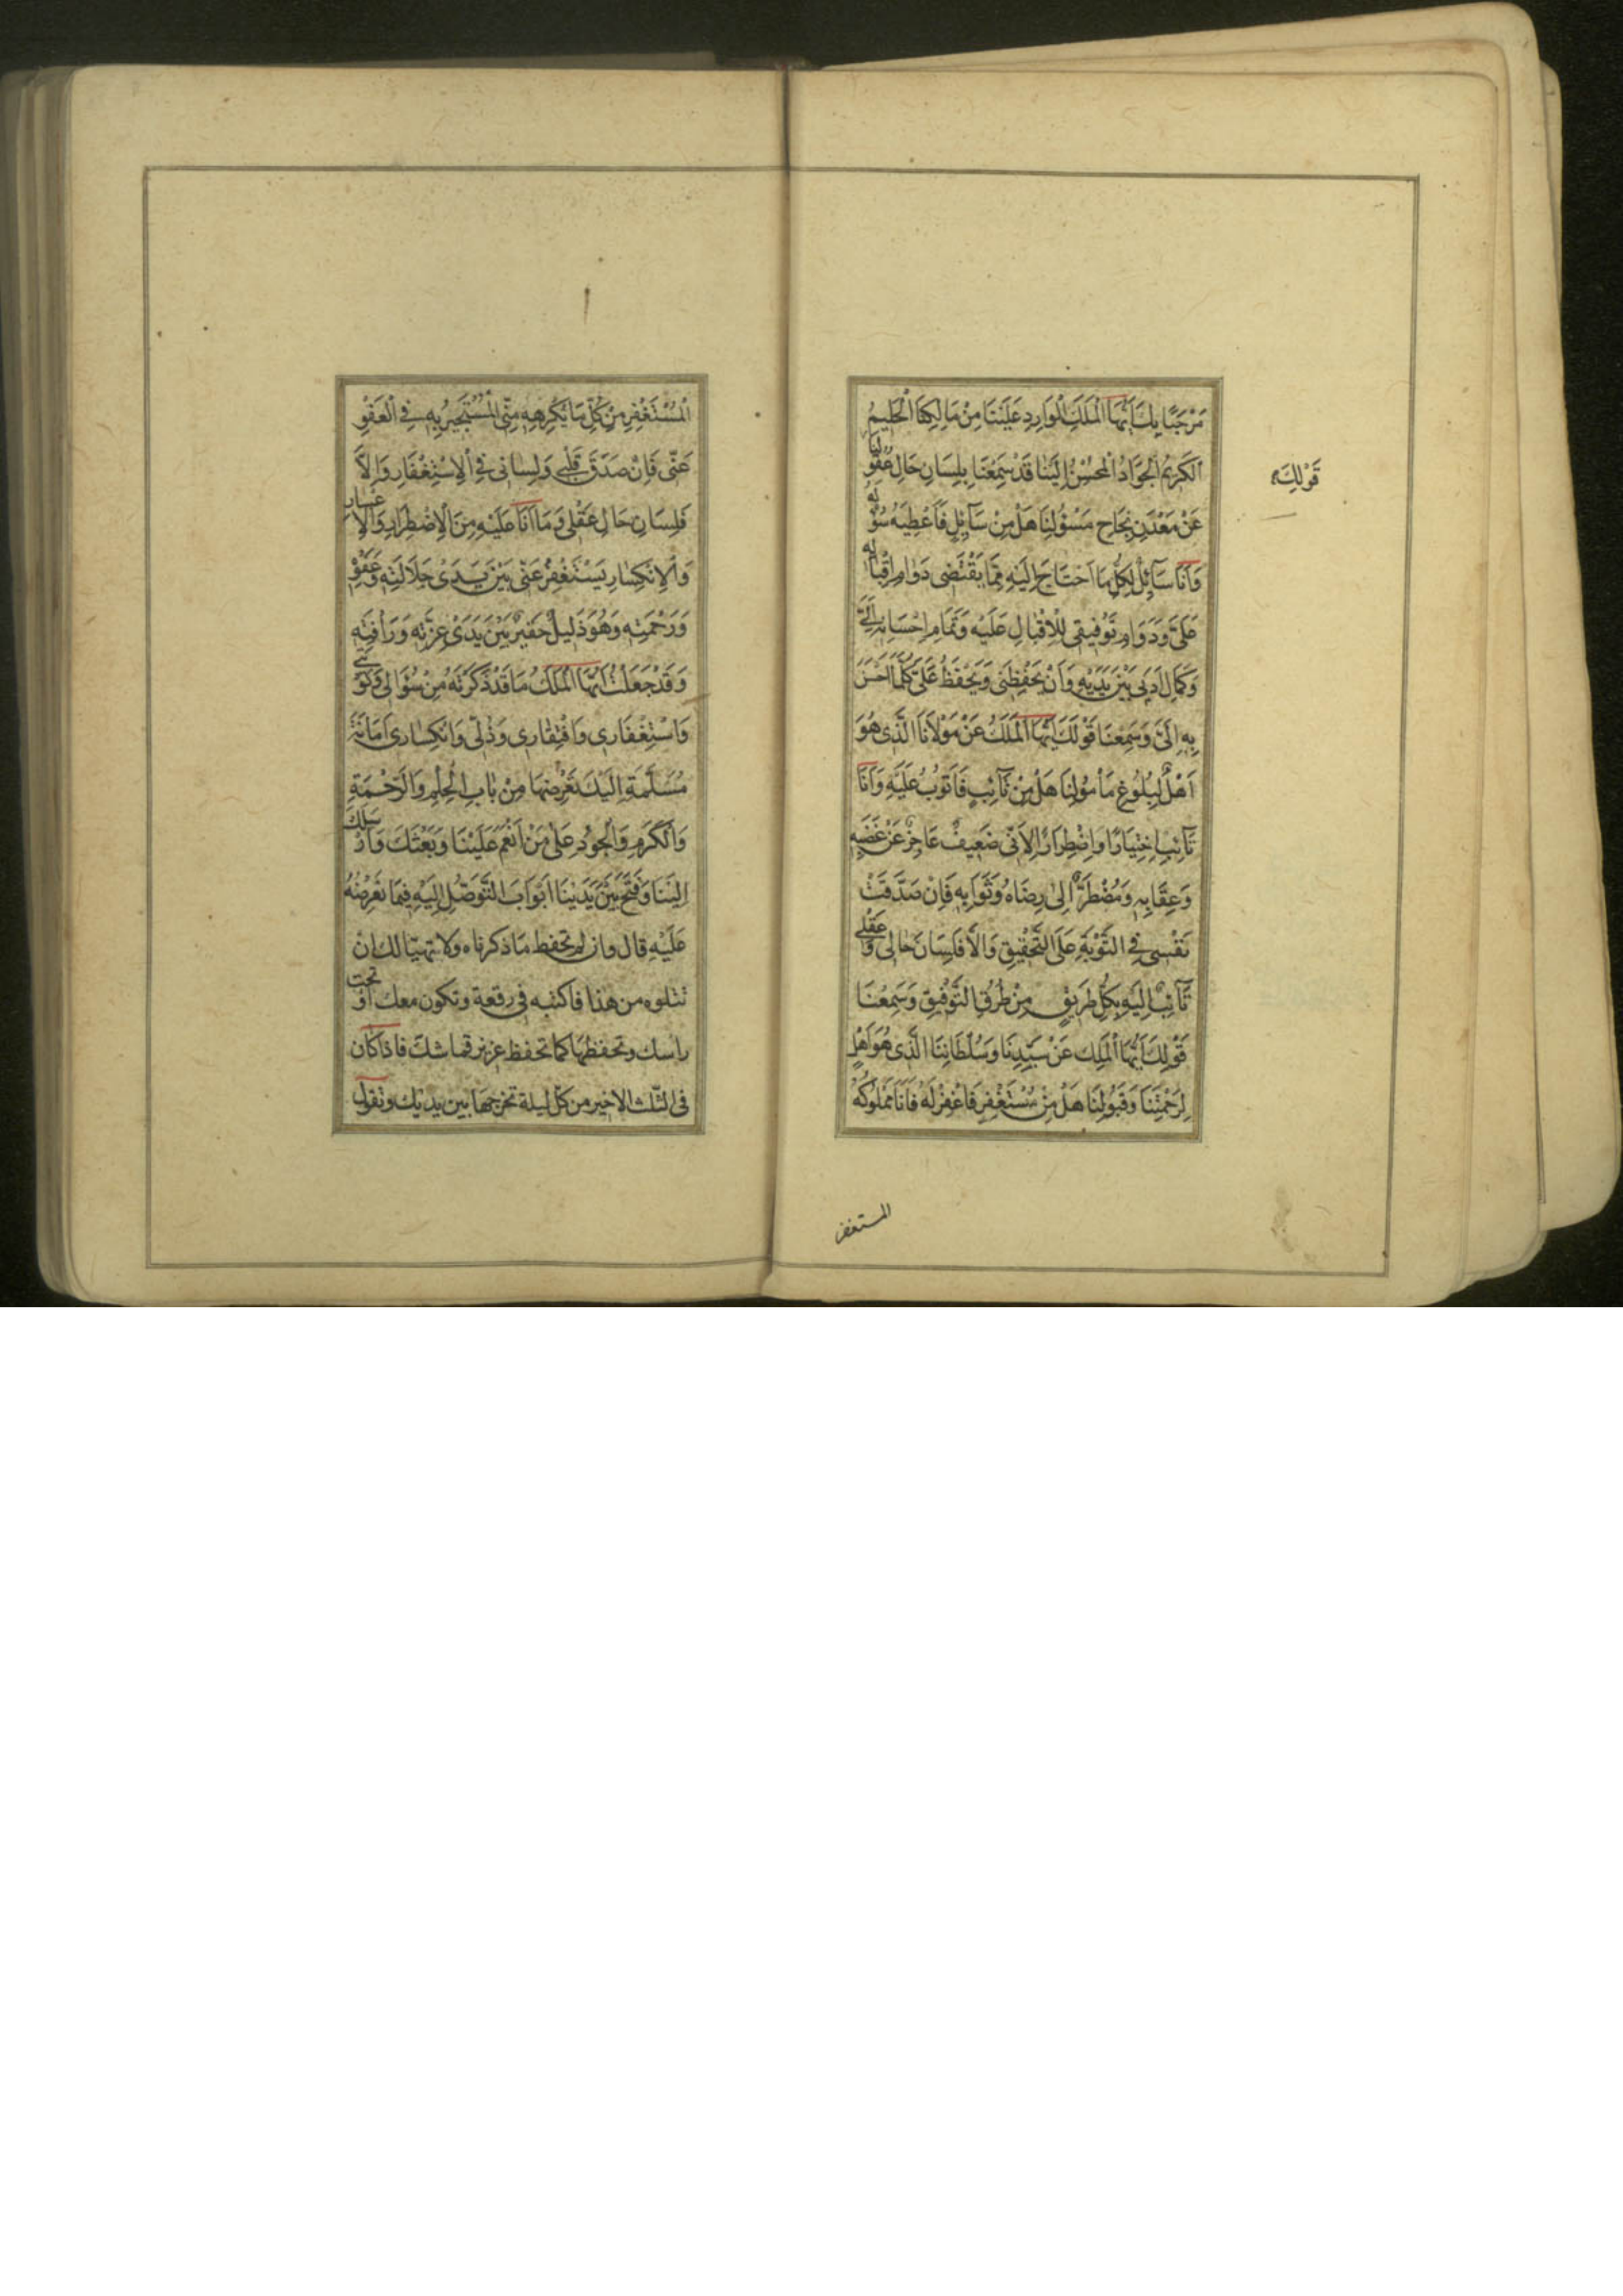 مَرْحَبًا بِكَ اَيُّهَا الْمَلَكُ الْوَارِدُ عَلَيْنَا مِنْ مَالِكِنَا الْحَلِيمُ
الْكَرِيمُ الْجَوَادُ الْمُحْسِنُ اِلَيْنَا قَدْ سَمِعْنَا بِلِسَانِ حَالِ عُقُولِنَا
قَوْلِكَ
عَنْ مَعْدَنِ نَجَاحِ مَسْؤُلِنَا هَلْ مِنْ سَآئِلٍ فَاُعْطِيَهُ سُؤْلَهُ
وَاَنَا سَآئِلٌ لِكُلِّ مَا اَحْتَاجُ اِلَيْهِ مِمَّا يَقْتَضِى دَوَامِ اِقْبَالِهِ
عَلَىَّ وَدَوَامِ تَوْفِيقِى لِلْاِقْبَالِ عَلَيْهِ وَتَمَامِ اِحْسَانِهِ اِلَىَّ
وَكَمَالِ اَدَبِى بَيْنَ يَدَيْهِ وَاَنْ يَحْفِظَنِى وَيَحْفَظَ عَلَىَّ كُلَّمَا اَحْسَنَ
بِهِ اِلَىَّ وَسَمِعْنَا قَوْلَكَ اَيُّهَا الْمَلَكُ عَنْ مَوْلَانَا الَّذِى هُوَ
اَهْلٌ لِبُلُوغِ مَاْمُوْلِنَا هَلْ مِنْ تَآئِبٍ فَاَتُوبُ عَلَيْهِ وَاَنَا
تَآئِبٌ اِخْتِيَارًا وَاِضْطِرَارًا لِاَنِّى ضَعِيفٌ عَاجِزٌ عَنْ غَضَبِهِ
وَعِقَابِهِ وَمُضْطَرٌّ اِلٰى رِضَاهُ وَثَوَابِهِ فَاِنْ صَدَّقَتْ
نَفْسِى فِى التَّوْبَةِ عَلَى التَّحْقِيقِ وَاِلَّا فَلِسَانَ حَالِى وَعَقْلِى
تَآئِبٌ اِلَيْهِ بِكُلِّ طَرِيقٍ مِنْ طُرُقِ التَّوْفِيقِ وَسَمِعْنَا
قَوْلِكَ اَيُّهَا الْمَلَكِ عَنْ سَيِّدِنَا وَسُلْطَانِنَا الَّذِى هُوَ اَهْلٌ
لِرَحْمَتِنَا وَقَبُولِنَا هَلْ مِنْ مُسْتَغْفِرٍ فَاَغْفِرُ لَهُ فَاَنَا مَمْلُوكُهُ
المستغفر
الْمُسْتَغْفِرِ مِنْ كُلِّ مَا يَكْرِهِهِ مِنِّى الْمُسْتَجِيرُ بِهِ فِى الْعَفْوِ
عَنّى فَاِنْ صَدَقَ قَلْبِى وَلِسانى فِى الْاِسْتِغْفَارِ وَاِلَّا
فَلِسَانِ حَالِ عَقْلِى وَمَا اَنَا عَلَيْهِ مِنَ الْاِضْطِرَارِ وَالْاِعْسَارِ
وَالْاِنْكِسَارِ يَسْتَغْفِرُ عَنّى بَيْنَ يَدَىْ جَلَالَتِهِ وَعَفْوِهِ
وَرَحْمَتِهِ وَهُوَ ذَلِيلٌ حَقِيرٌ بَيْنَ يَدَىْ عِزَّتِهِ وَرَاْفَتِهِ
وَقَدْ جَعَلْتُ اَيُّهَا الْمَلَكُ مَا قَدْ ذَكَرْتَهُ مِنْ سُؤَالِى وَتَوْبَتِى
وَاسْتِغْفَارِى وَافْتِقَارِى وَذُلّى وَانْكِسَارِى اَمَانَةً
مُسَلَّمَةِ اِلَيْكَ تَعْرِضُهَا مِنْ بَابِ الْحِلْمِ وَالرَّحْمَةِ
وَالْكَرَمِ وَالْجُودِ عَلٰى مَنْ اَنْعَمَ عَلَيْنَا وَبَعَثَكَ وَاَرْسَلَكَ
اِلَيْنَا وَفَتَحَ بَيْنَ يَدَيْنَا اَبْوَابَ التَّوَصُّلِ اِلَيْهِ فِيمَا نَعْرِضُهُ
عَلَيْهِ قال وان لم تحفظ ما ذكرناه ولا تهيّا لك ان
تتلوه من هذا فاكتبه فى رقعة وتكون معك او تحت
راسك وتحفظها كما تحفظ عزيز قماشك فاذا كان
فى الثلث الاخير من كل ليلة تخرجها بين يديك وتقول